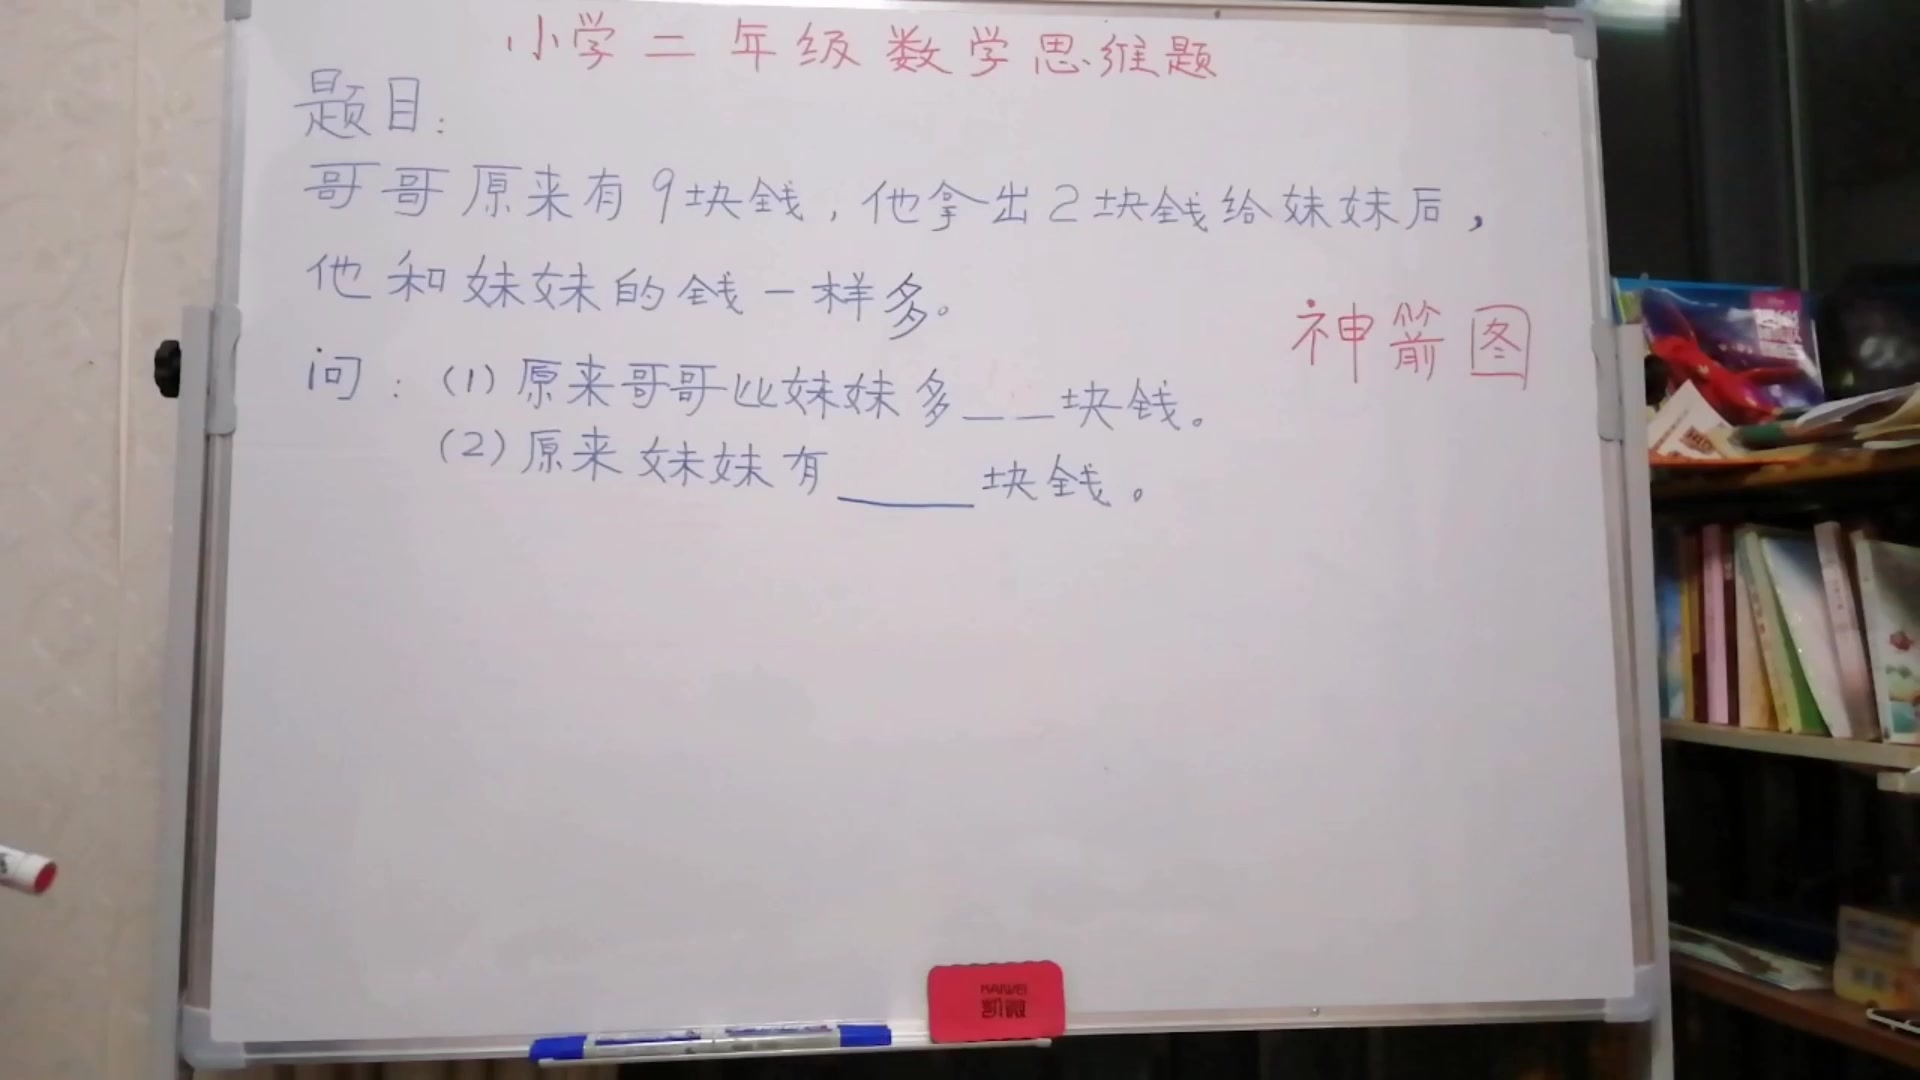 小学二年级数学思维题
题目:
哥哥原来有9块钱,他拿出2块钱给妹妹后,
他和妹妹的钱一样多。
神箭图
问:(1)原来哥哥比妹妹多__块钱。
(2)原来妹妹有____块钱。
KAIWEI
凯微